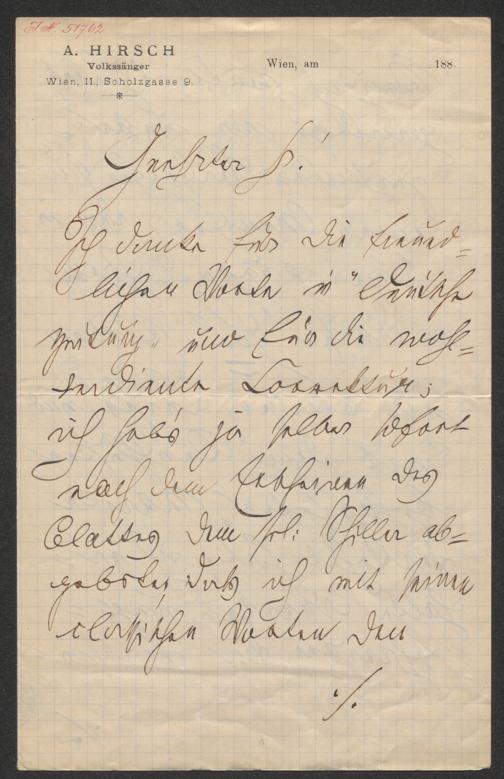 I N. 51762
A. HIRSCH
Volkssänger
Wien, II., Scholzgasse 9.
Wien, am 188
Geehrter H!
Ich danke für die freund=
lichen Worte in "Deutsche
Zeitung" und für die wohl=
verdiente Correktur;
ich hab's ja selber sofort
nach dem Erscheinen des
Blattes dem sel: Schiller ab=
gebeten, daß ich mit seinen
classischen Worten den
./.